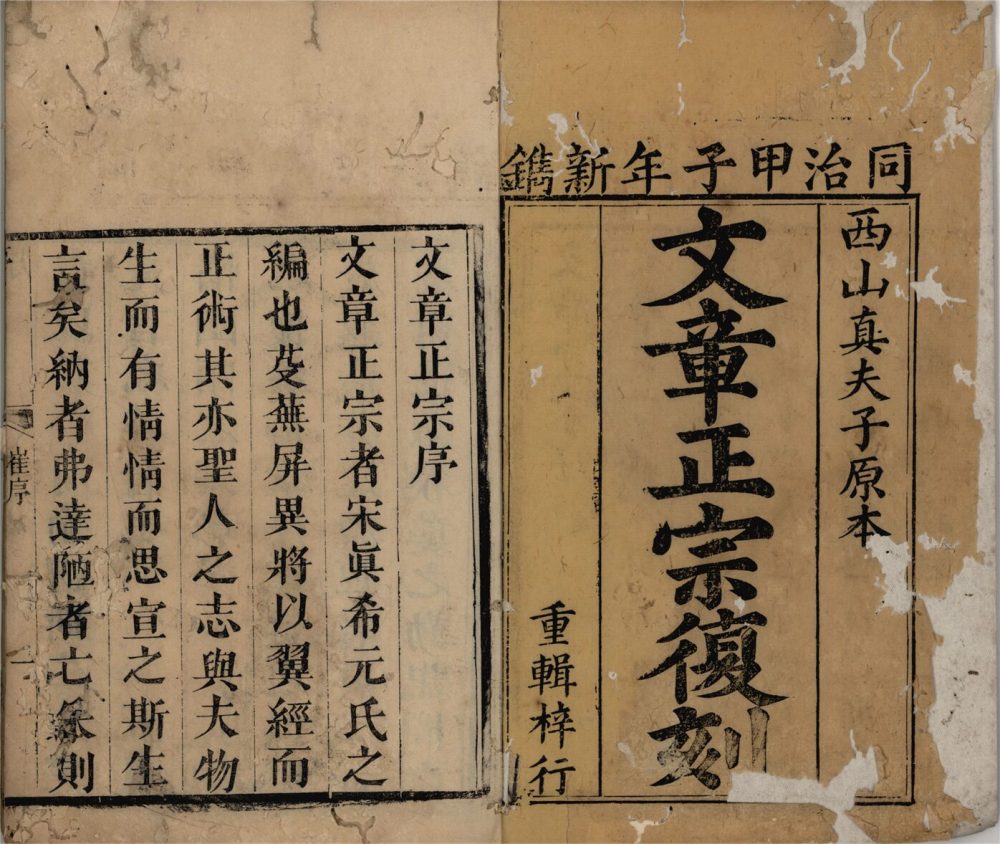 同治甲子年新鐫
西山真夫子原本
文章正宗復刻
重輯梓行
文章正宗序
文章正宗者宋眞希元氏之
編也芟蕪屏異將以翼經而
正術其亦聖人之志與夫物
生而有情情而思宣之斯生
言矣納者弗達陋者亡叅則
崔序
一